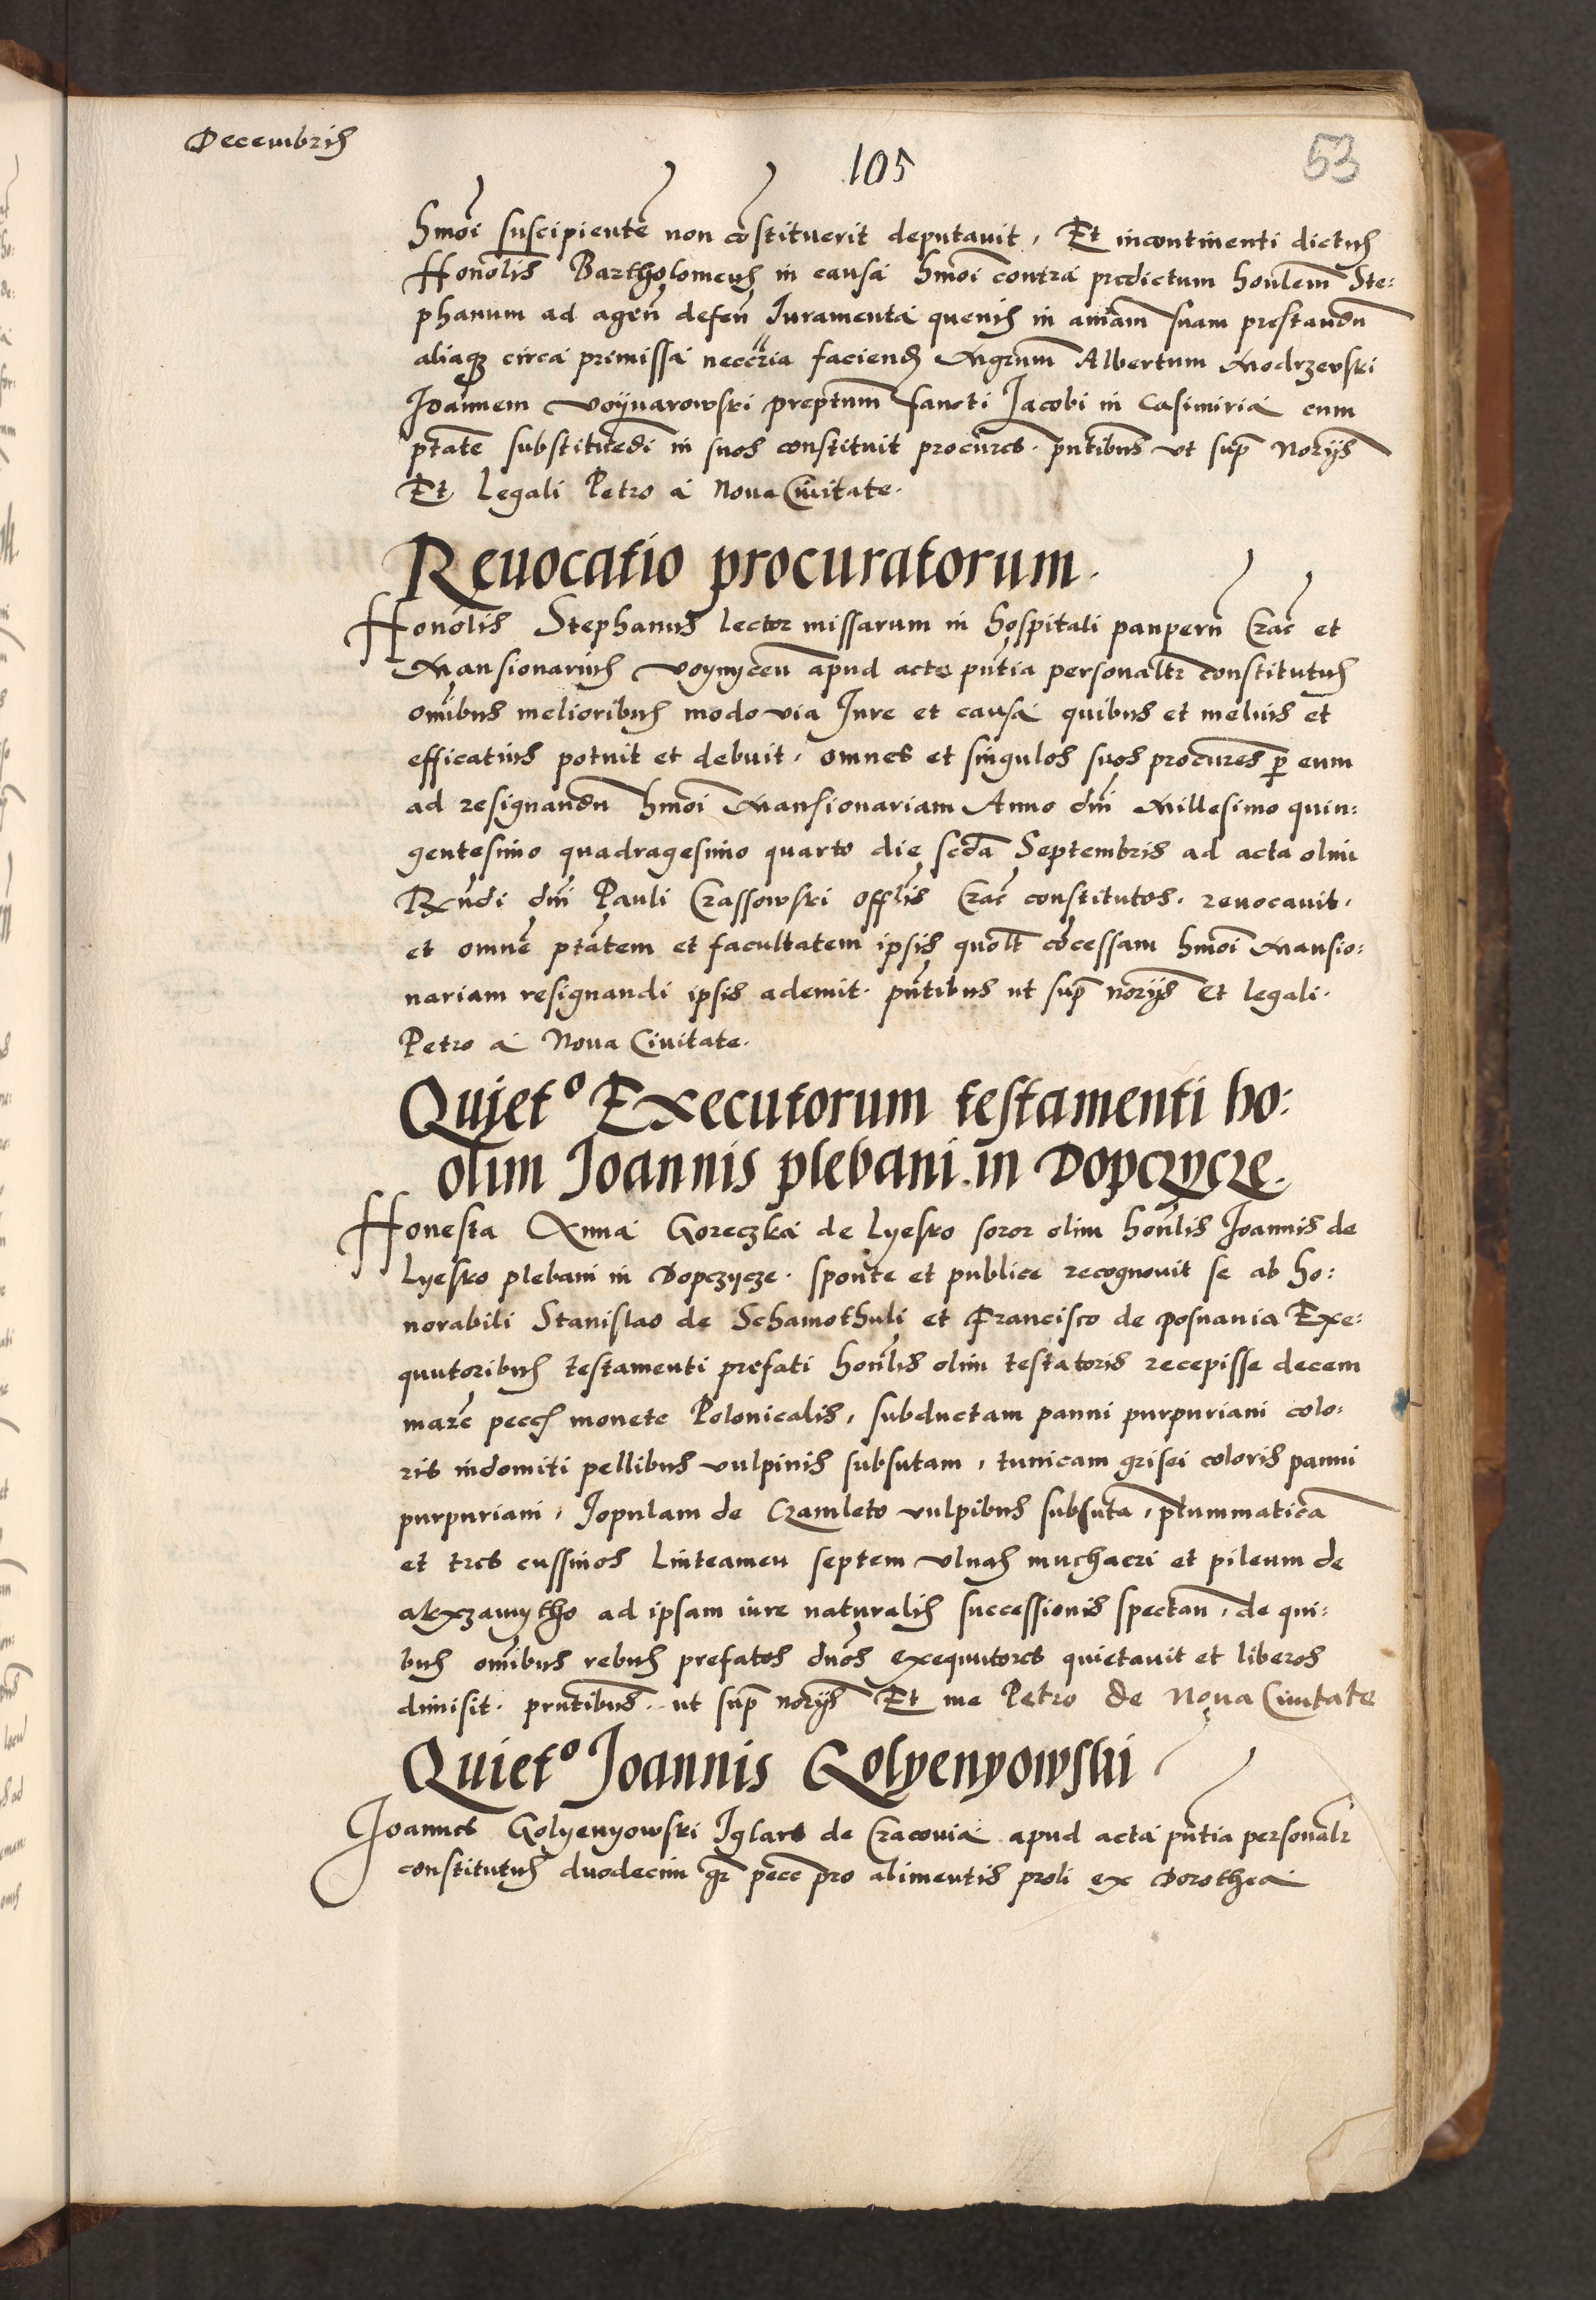 Decembris
105
53
hmoi suscipientē non cōstituerit deputauit, Et incontinenti dictus
Honolis Bartholomeus in causa hmoi contra predictum honlem Ste:
phanum ad agen̄ defen̄ Iuramenta quenis in aniam suam prestandū
aliaqȝ circa primissa necc̄ria faciend Mgrum Albertum Modrzewski
Joannem Voynarowski preptum sancti Jacobi in Casimiria cum
ptātē substituēdi in suos constituit procures. pn̄tibus vt supᵃ Norijs
Et Legali Petro a Noua Ciuitate.
Reuocatio procuratorum.
Honolis Stephanus lector missarum in hospitali pauperū Crac̄ et
Mansionarius Voynycen̄ apud acta pn̄tia personaltr constitutus
om̄ibus melioribus modo via Iure et causa quibus et melius et
efficatius potuit et debuit, omnes et singulos suos procures ꝑ eum
ad resignandū hmoi Mansionariam Anno dn̄i Millesimo quin:
gentesimo quadragesimo quarto die scd̄a Septembris ad acta olim
Rn̄di dn̄i Pauli Crassowski offlis Crac̄ constitutos. reuocauit.
et omnē ptātem et facultatem ipsis quolt cōcessam hmoi Mansio:
nariam resignandi ipsis ademit. pn̄tibus ut supᵃ norijs Et legali.
Petro a Noua Ciuitate.
Quietº Executorum testamenti ho:
olim Joannis plebani in Dopczycze.
Honesta Anna Goreczka de Lyesko soror olim hon̄lis Joannis de
Lyesko plebani in Dopczycze. sponte et publice recognouit se ab ho:
norabili Stanislao de Schamothuli et Francisco de posnania Exe:
quutoribus testamenti prefati hon̄lis olim testatoris recepisse decem
marc̄ pecc̄ monete Polonicalis, subductam panni purpuriani colo:
ris indomiti pellibus vulpinis subsutam, tunicam grisei coloris panni
purpuriani, Jopulam de Czamleto vulpibus subsutā, plummaticā
et tres cussinos Linteamen septem vlnas muchaeri et pileum de
alexzamytho ad ipsam iure naturalis successionis spectan̄, de qui:
bus om̄ibus rebus prefatos dn̄os exequutores quietauit et liberos
dimisit. prn̄tibus. ut supᵃ norijs Et me Petro de Noua Ciuitate
Quietº Joannis Golyenyowski
Joannes Golyenyowski Iglars de Cracouia apud acta pn̄tia personalr
constitutus duodecim gr̄ pecc̄ pro alimentis proli ex Dorothea